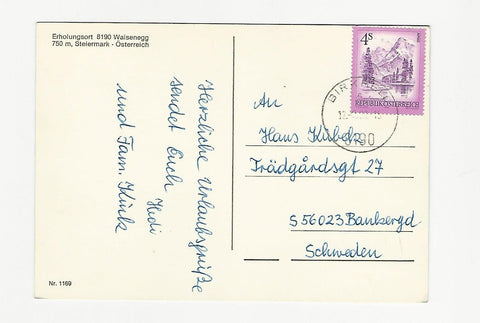 Erholungsort 8190 Waisenegg
750 m, Steiermark - Österreich
Herzliche Urlaubsgrüße
sendet Euch
Hedi
und Fam. Kink
Nr. 1169
4S
REPUBLIK ÖSTERREICH
8190
An
Hans Kübek
Trädgårdsgt 27
S 56023 Bankeryd
Schweden